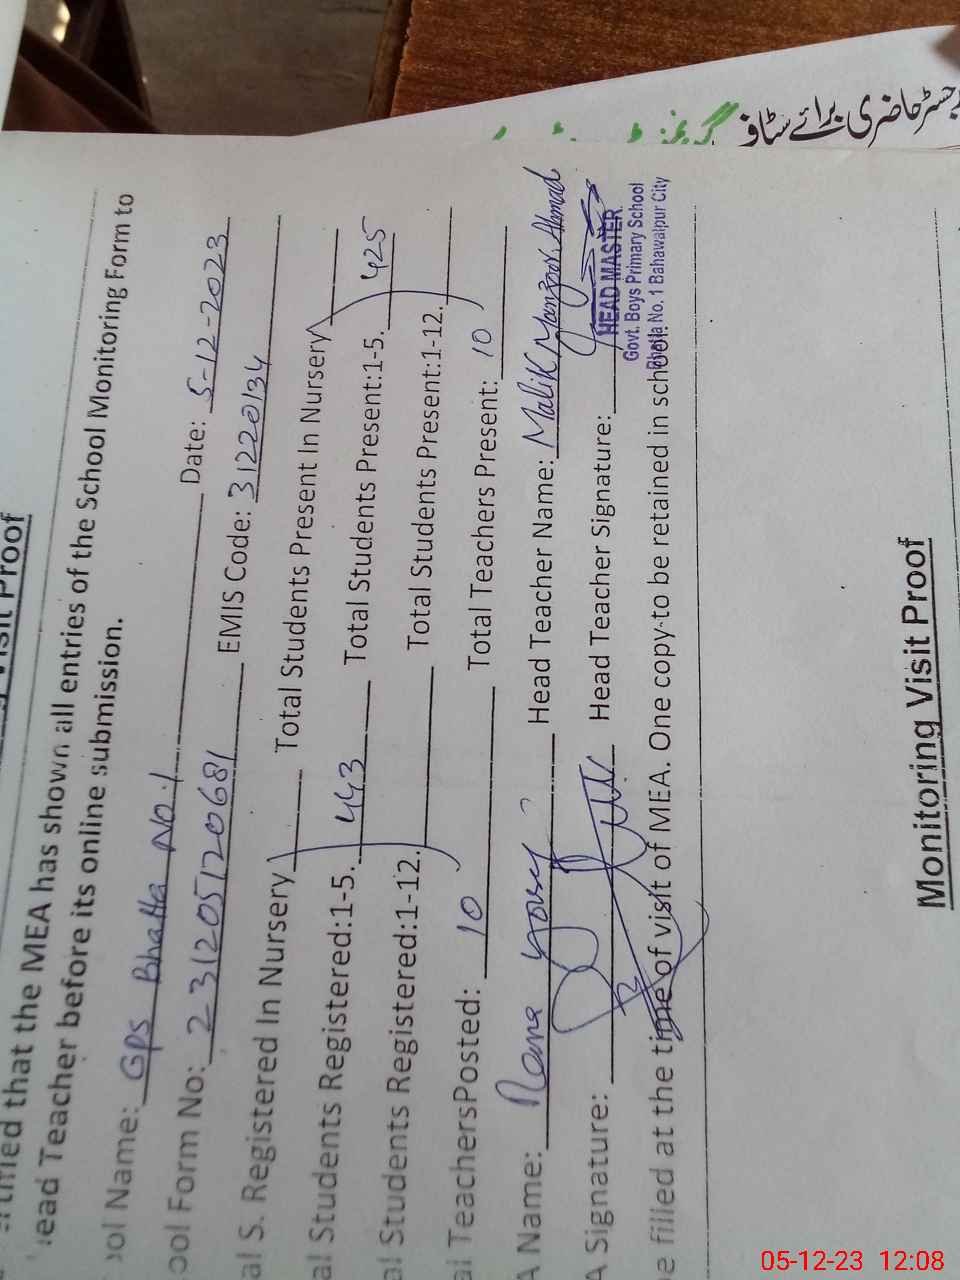 Visit Proof
that the MEA has shown all entries of the School Monitoring Form to
Head Teacher before its online submission.
ool Name: GPS Bhatta No.1 Date: 5-12-2023
ool Form No: 231205120681 EMIS Code: 31220134
al S. Registered In Nursery Total Students Present In Nursery
al Students Registered:1-5. 443 Total Students Present:1-5. 425
al Students Registered:1-12. Total Students Present:1-12.
al TeachersPosted: 10 Total Teachers Present: 10
A Name: Rana Head Teacher Name: Malik Manzoor Ahmad
A Signature: Head Teacher Signature:
HEAD MASTER
Govt. Boys Primary School
Bhatta No. 1 Bahawalpur City
e filled at the time of visit of MEA. One copy to be retained in school.
Monitoring Visit Proof
رجسٹر حاضری برائے سٹاف
05-12-23 12:08